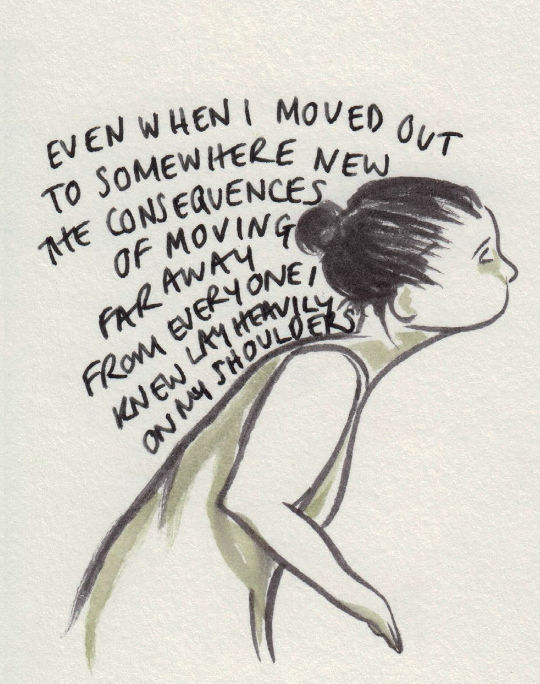 EVEN WHEN I MOVED OUT
TO SOMEWHERE NEW
THE CONSEQUENCES
OF MOVING
FAR AWAY
FROM EVERYONE I
KNEW LAY HEAVILY
ON MY SHOULDERS